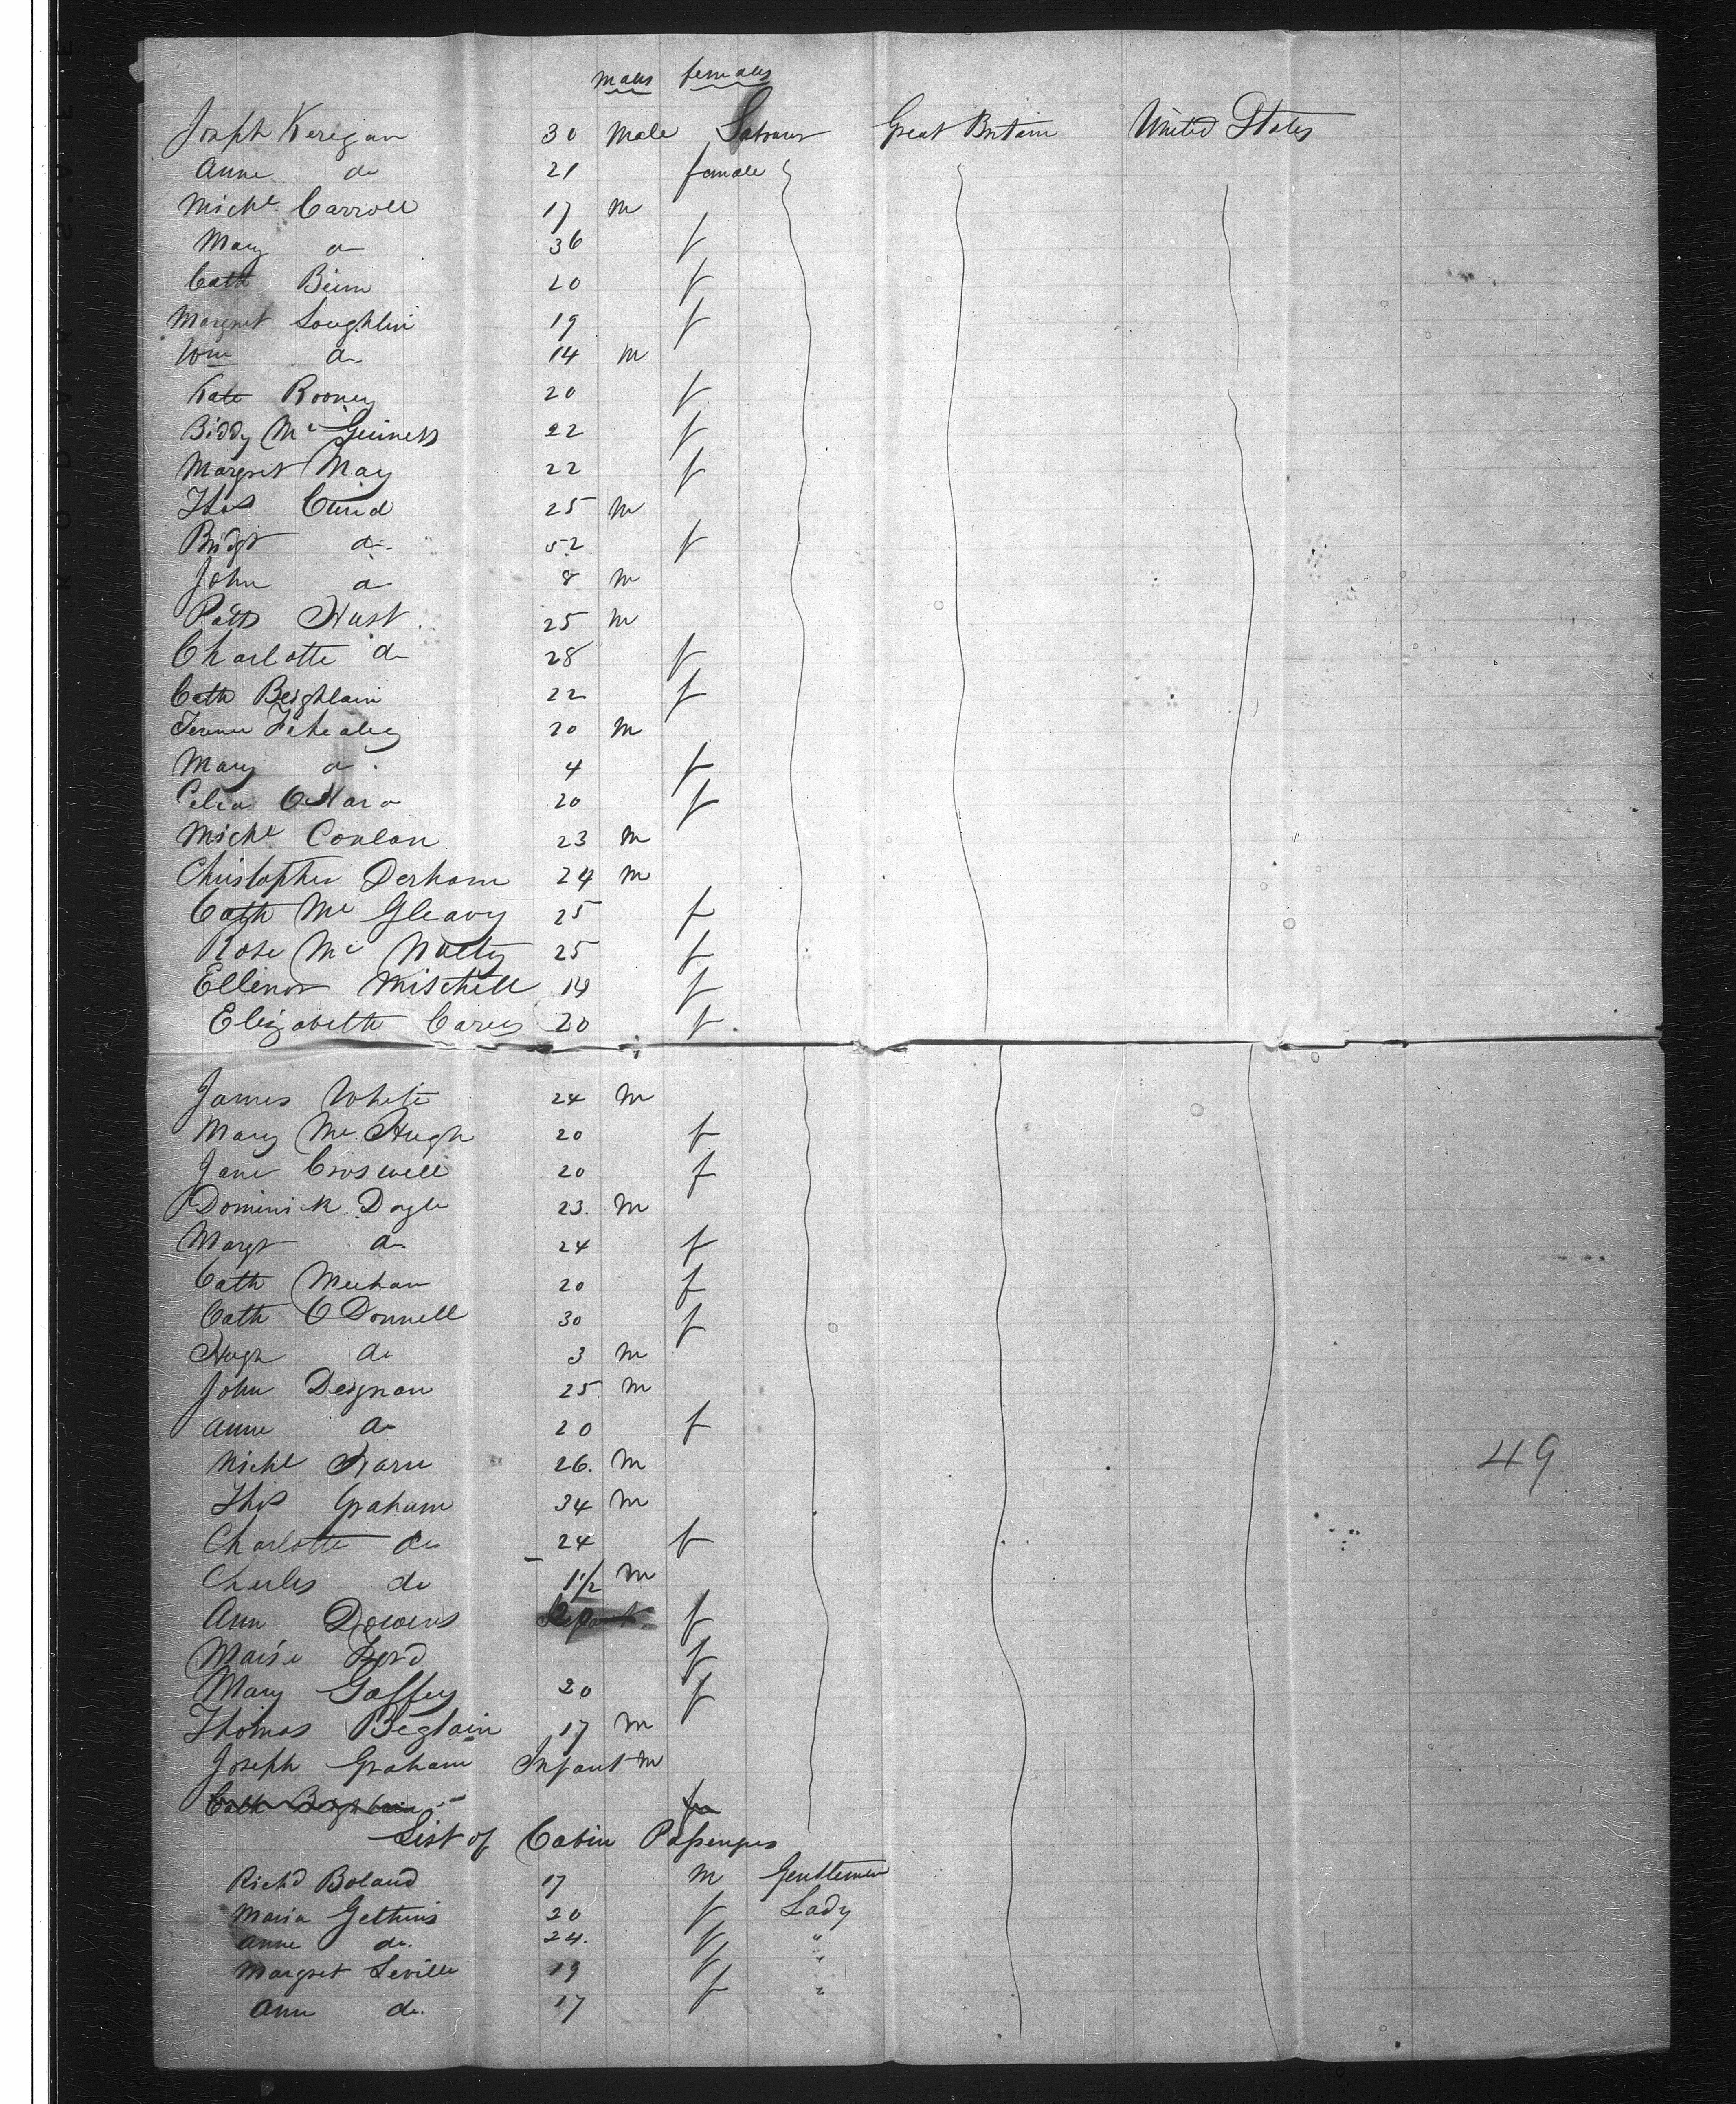 males females
Joseph Keregan 30 Male Labourer Great Britain United States
Anne do 21 female
Michl Carroll 17 m
Mary do 36 f
Cath Beirn 20 f
Margret Loughlin 19 f
Wm do 14 m
Kate Rooney 20 f
Biddy Mc Guiness 22 f
Margret May 22 f
Thos 25 m
Bridgt do 52 f
John do 8 m
Patts Hust 25 m
Charlotte do 28 f
Cath Beighlain 22 f
20 m
Mary do 4 f
Celia O'Hara 20 f
Michl Conlan 23 m
Christopher Derham 24 m
Cath Mc Gleavy 25 f
Rose Mc Nulty 25 f
Ellenor Mischell 19 f
Elizabeth Carey 20 f
James White 24 m
Mary Mc Hugh 20 f
Jane Croswell 20 f
Dominick Doyle 23 m
Margt do 24 f
Cath Meehan 20 f
Cath O Donnell 30 f
Hugh do 3 m
John Deignan 25 m
Anne do 20 f
Michl 26 m
Thos Graham 34 m
Charlotte do 24 f
Charles do 1 1/2 m
Ann Downs 20 f
Ford f
Mary Gaffey 20 f
Thomas Beglain 17 m
Joseph Graham Infant m
Cath Beighlain f
List of Cabin Passengers
Richd Boland 17 m Gentlemen
Maria Gethins 20 f Lady
Anne do. 24. f "
Margret Seville 19 f "
Ann do. 17 f "
49